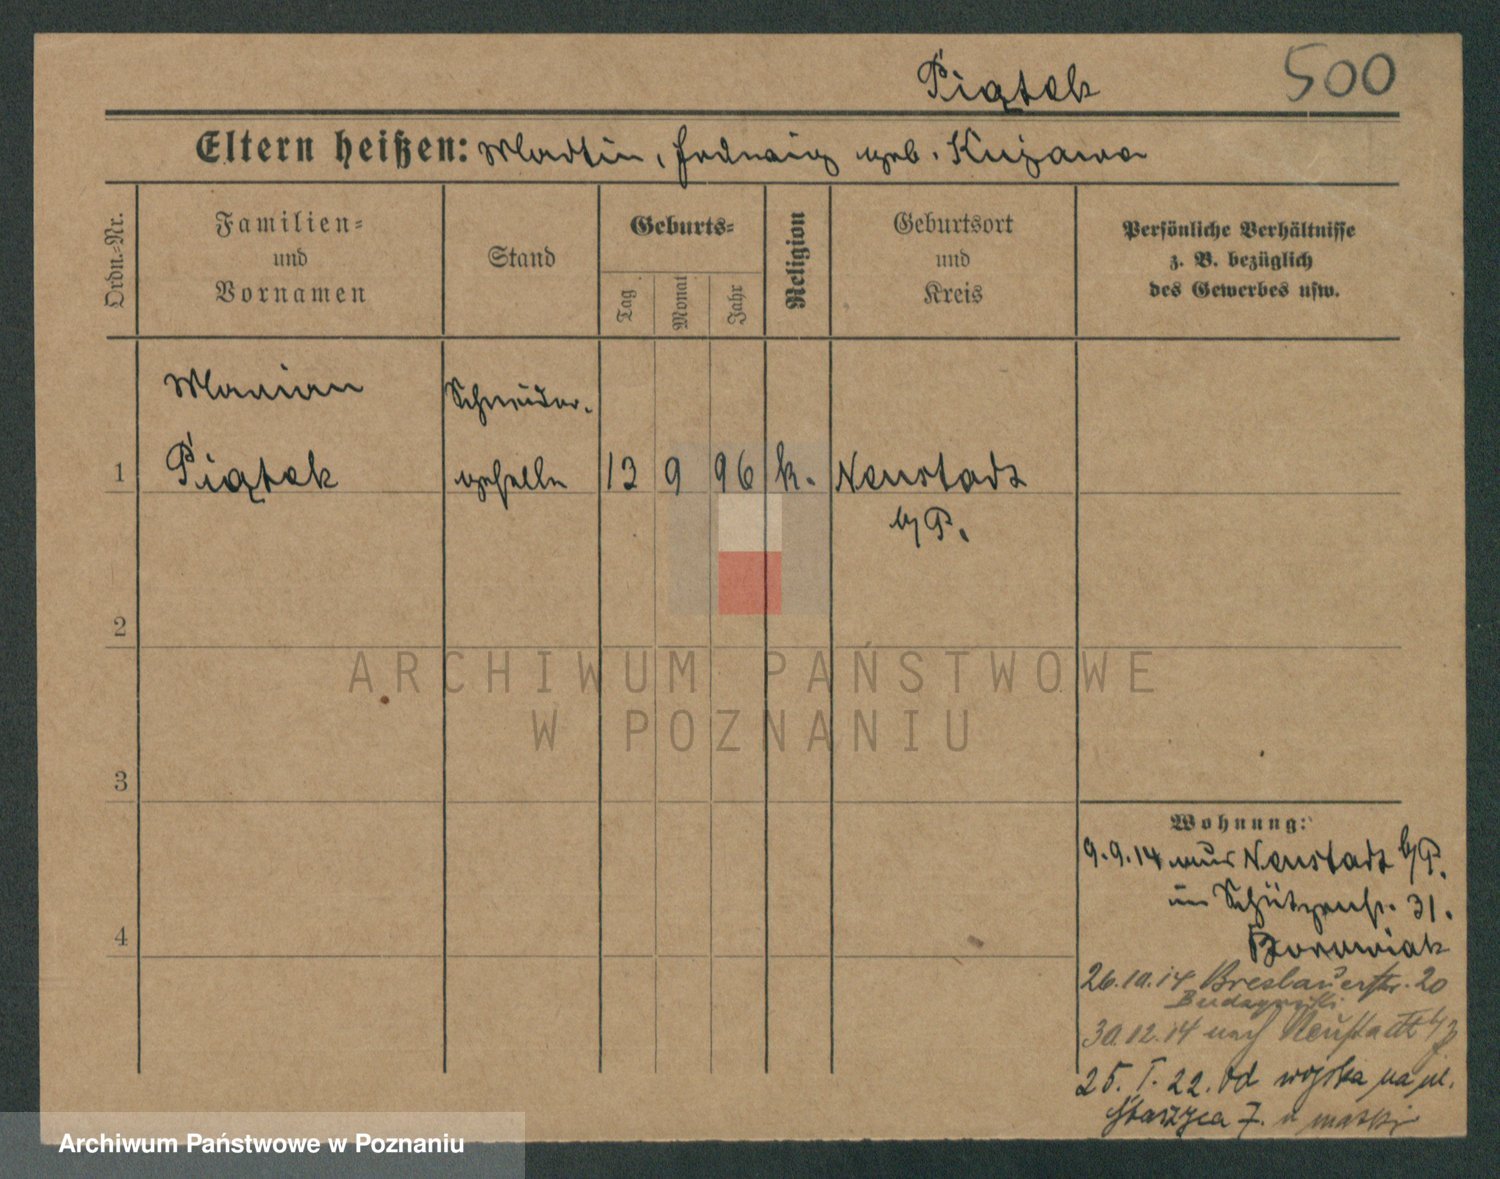 Piątek 500
Eltern heißen: Martin, Hedwig geb. Kujawa
Ordn.-Nr.
Familien-
und
Vornamen
Stand
Geburts-
Tag
Monat
Jahr
Religion
Geburtsort
und
Kreis
Persönliche Verhältnisse
z. B. bezüglich
des Gewerbes usw.
Marian Schneider-
1 Piątek geselle 13 9 96 k. Neustadt
b/P.
2
ARCHIWUM PAŃSTWOWE
W POZNANIU
3
Wohnung:
9.9.14 aus Neustadt b/P.
in Schützenstr. 31.
4
26.10.14 Breslauerstr. 20
30.12.14 nach Neustadt b/P
25. I. 22. od wojska na ul.
Staszyca 7. u matki
Archiwum Państwowe w Poznaniu